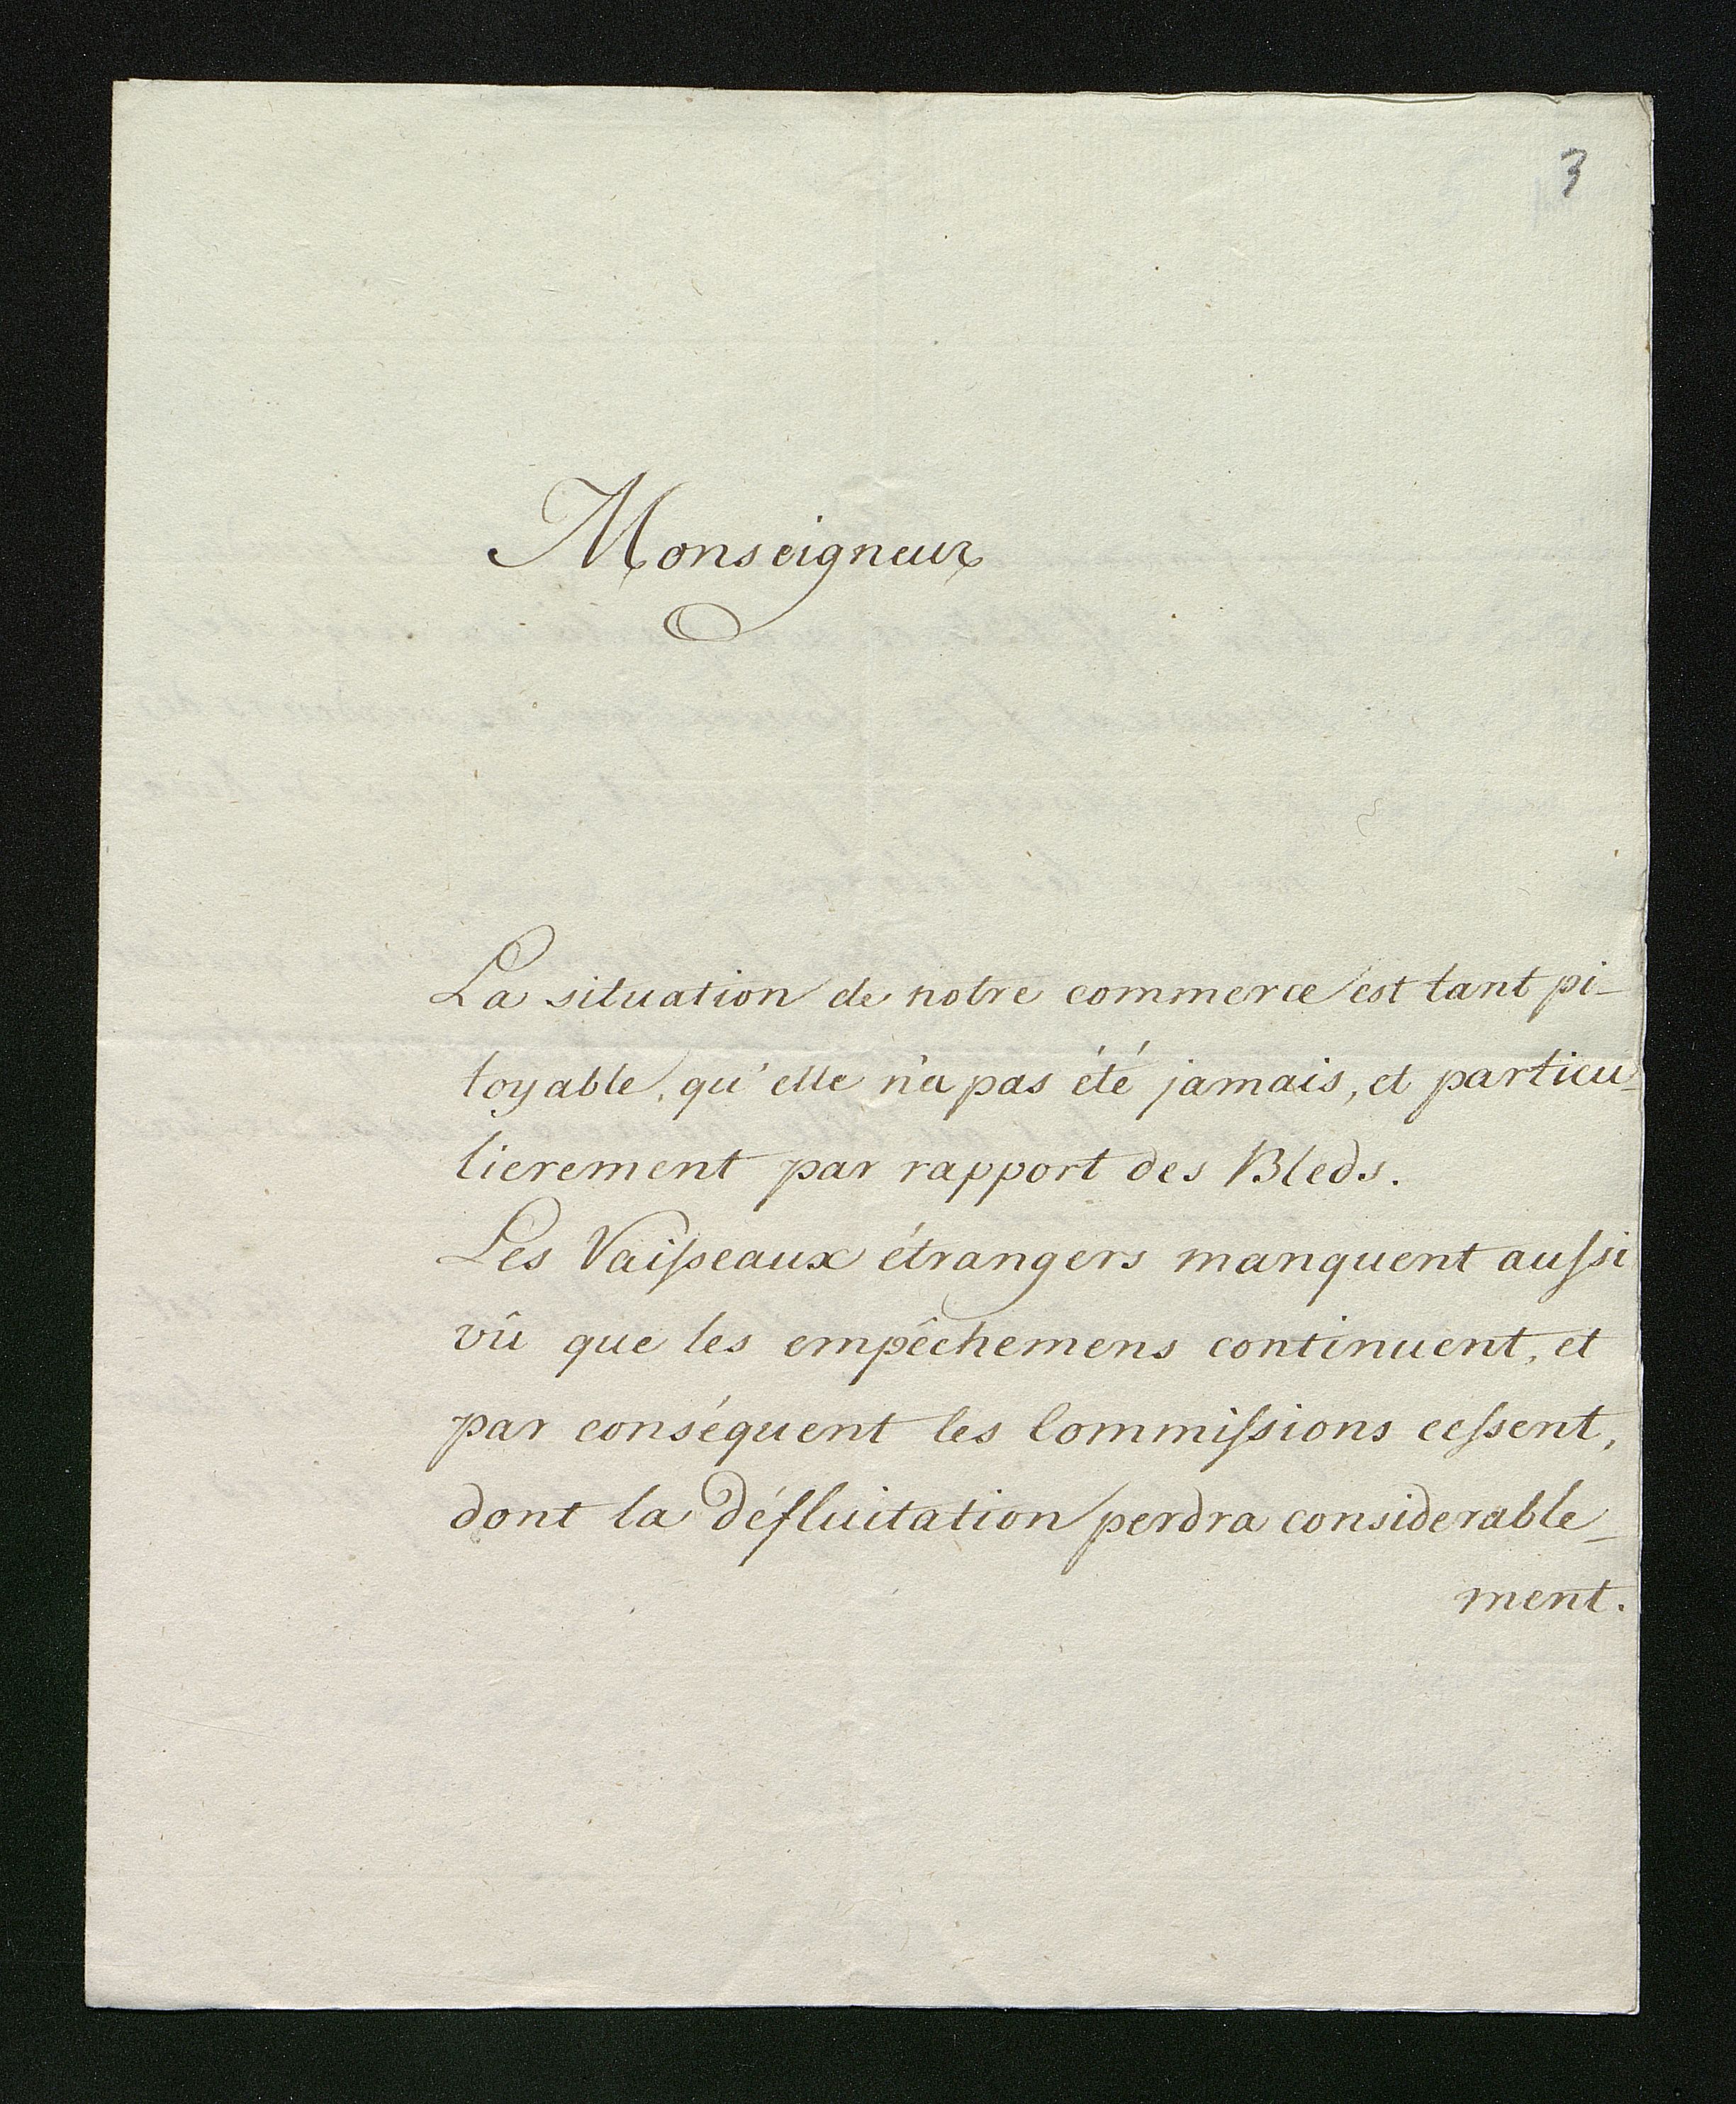 3
Monseigneur
La situation de notre commerce est tant pi-
toyable, qu'elle n'a pas été jamais, et particu-
lierement par rapport des Bleds.
Les Vaiſseaux étrangers manquent auſsi
vû que les empêchemens continuent, et
par conséquent les Commiſsions ceſsent,
dont la défluitation perdra considerable-
ment.